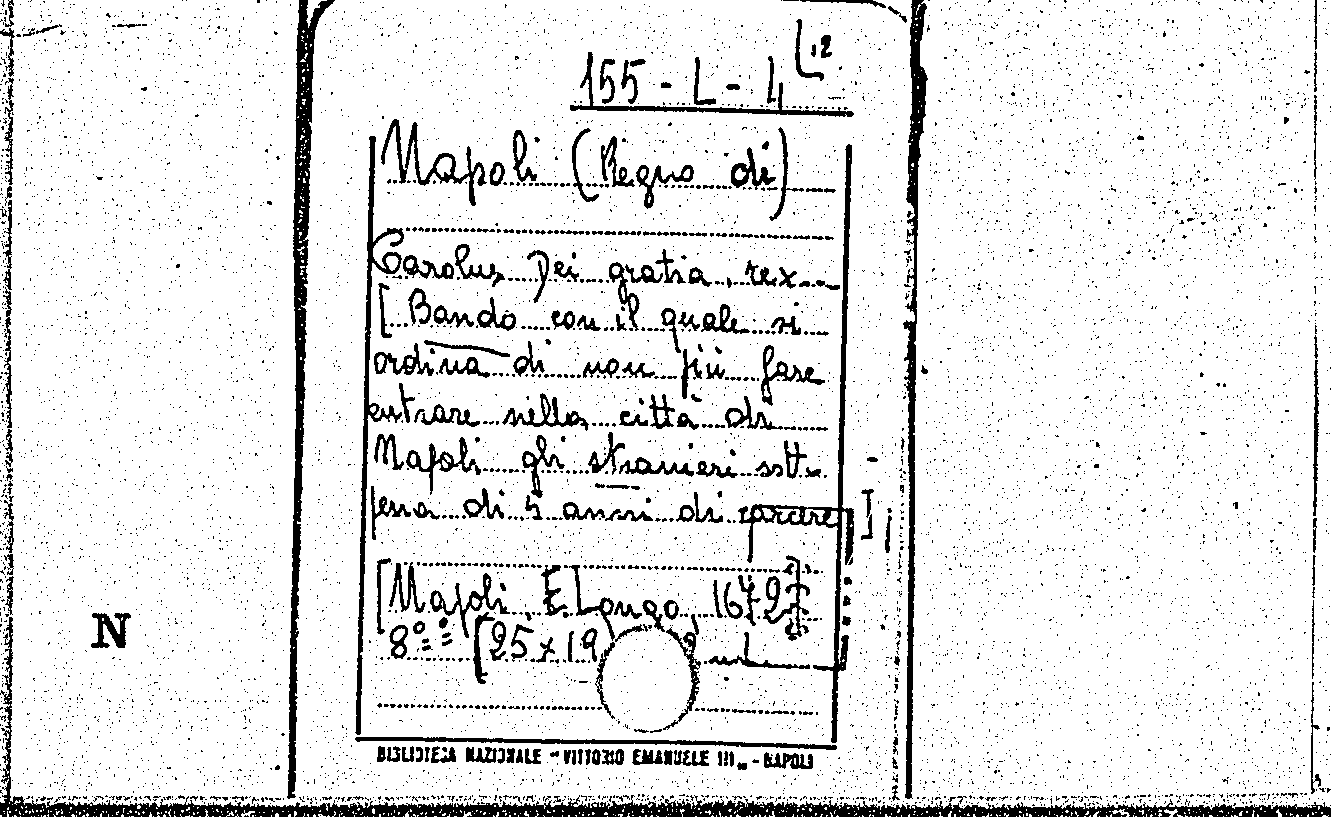 155 - L - 4 L.2
Napoli (Regno di)
Carolus Dei gratia, rex...
[Bando con il quale si
ordina di non più fare
entrare nella città di
Napoli gli stranieri sott.
pena di 5 anni di carcere]
[Napoli, E. Longo, 1672]
8° [25 x 19
N
BIBLIOTECA NAZIONALE - VITTORIO EMANUELE III - NAPOLI